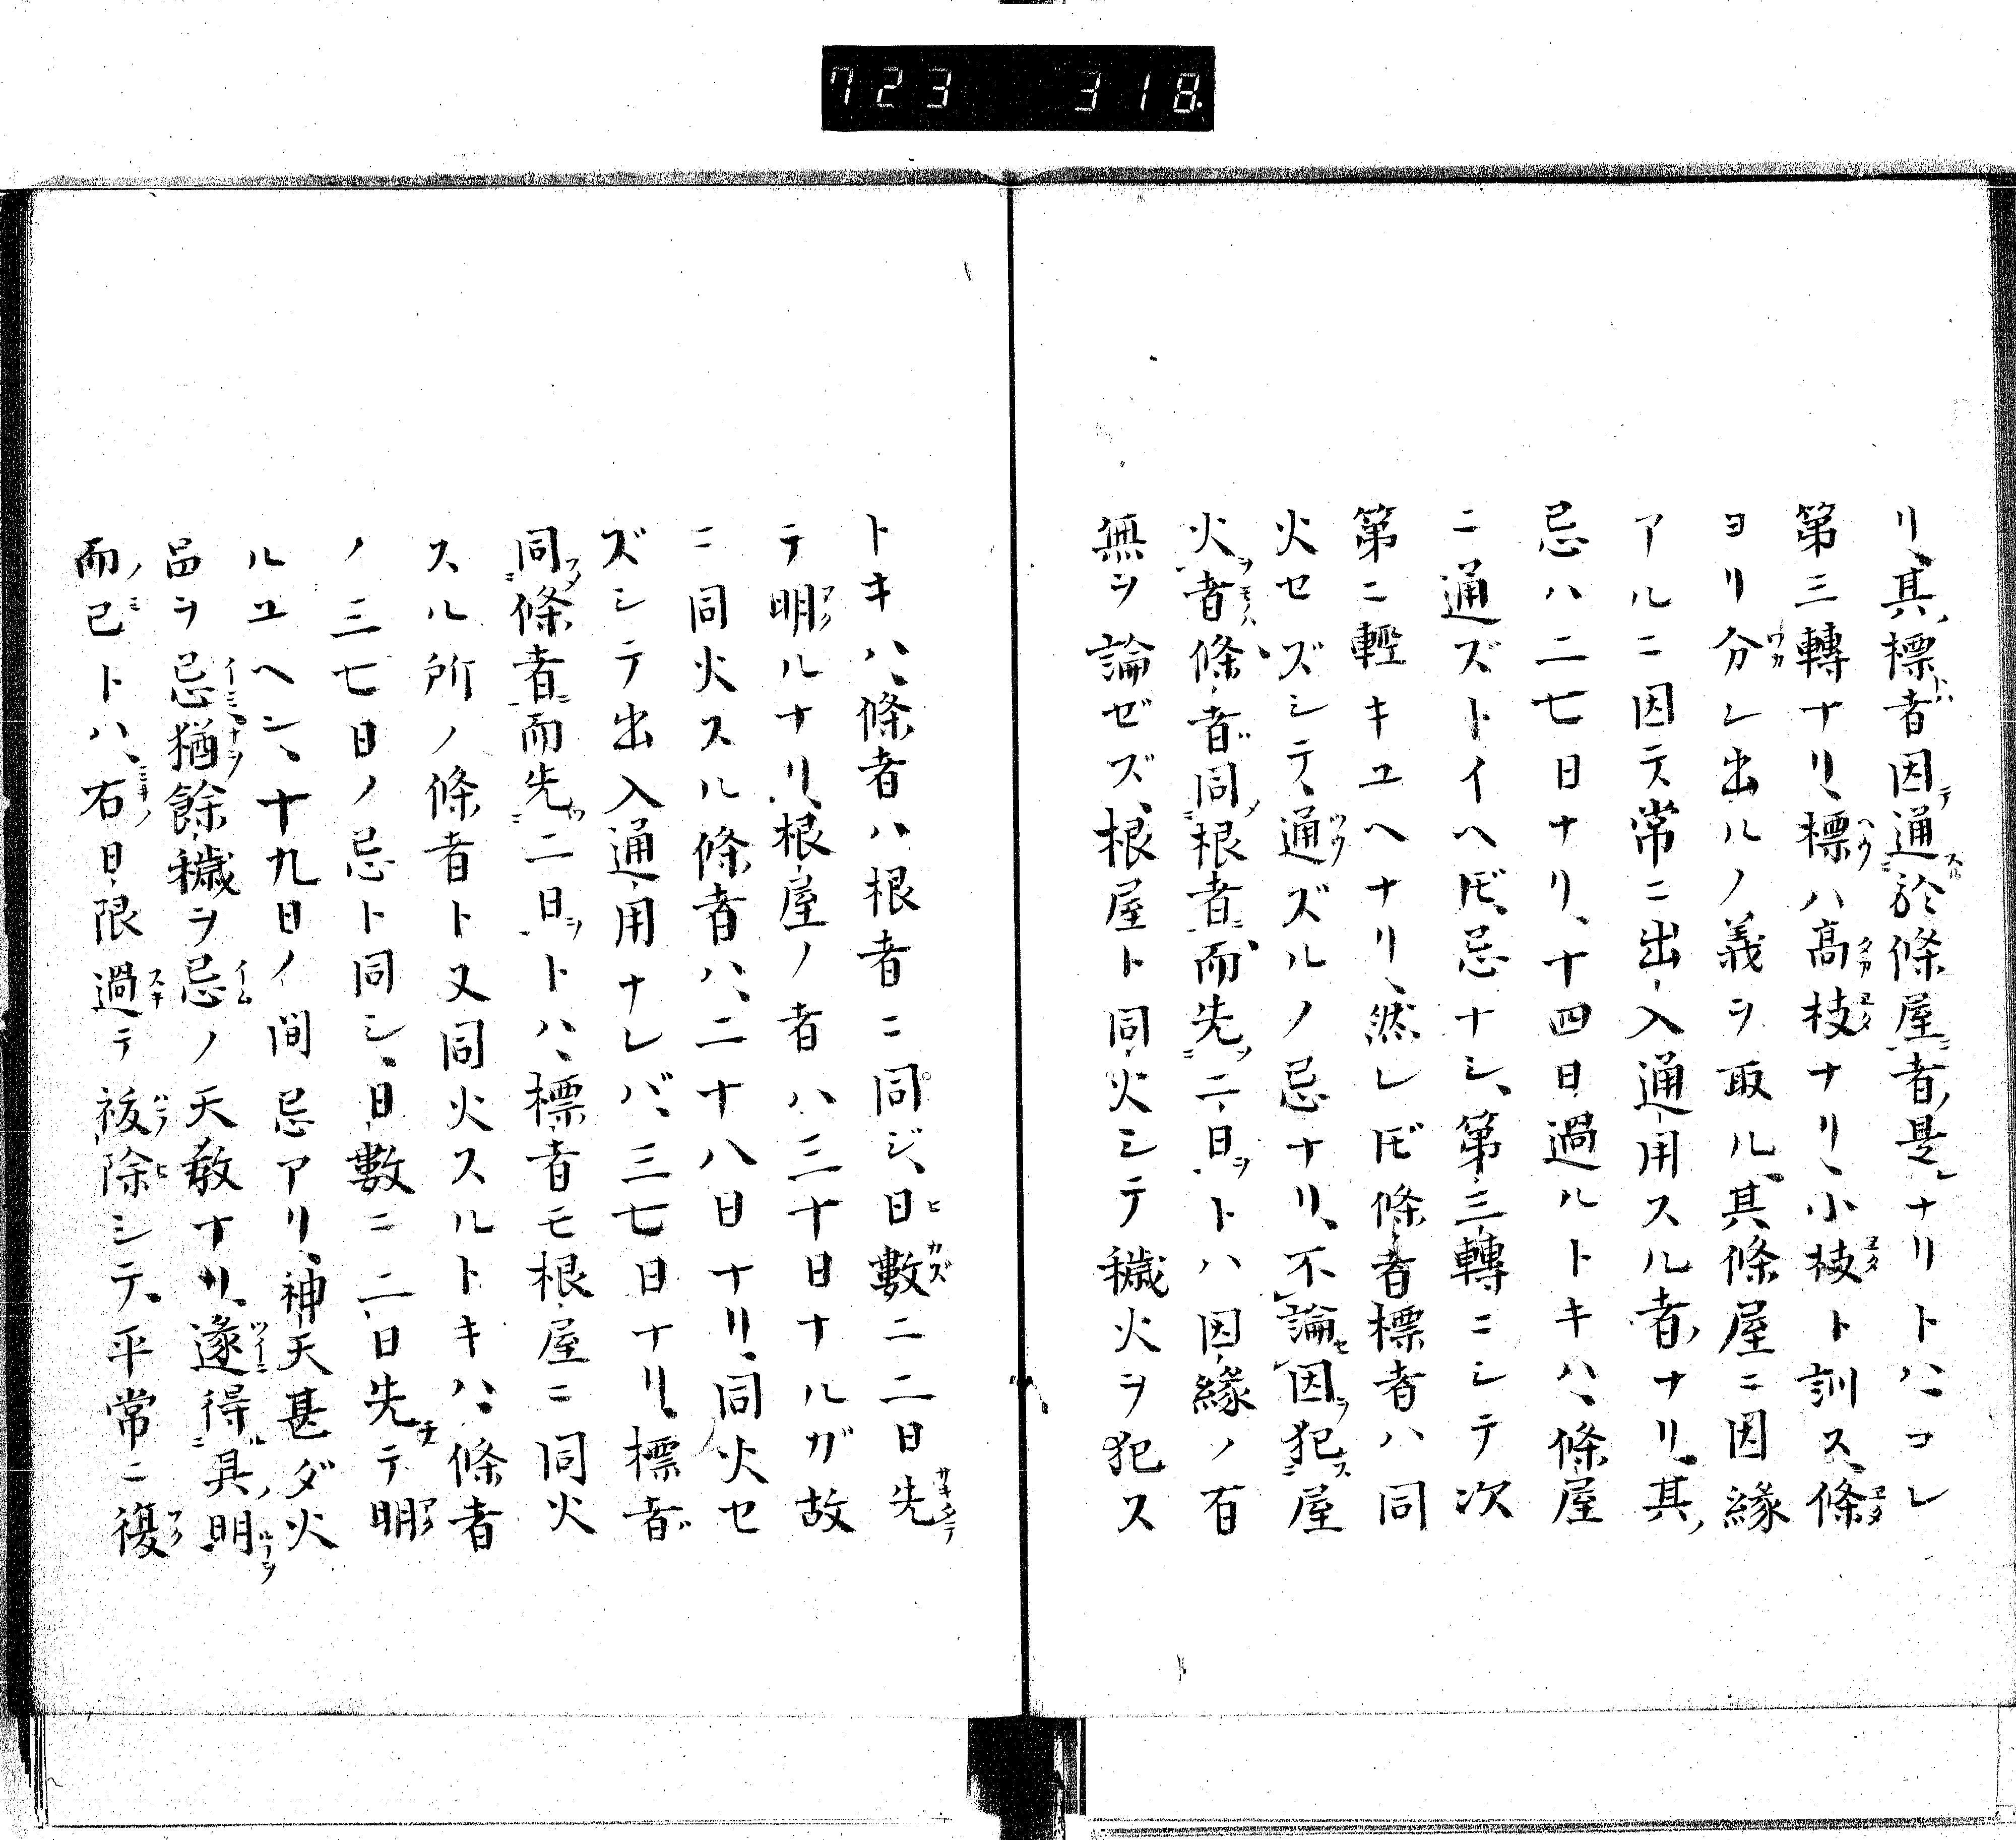 723 318
リ、其ノ標者因テ通於條屋者是レナリトハ、コレ
第三轉ナリ、標ハ高枝ナリ、小枝ト訓ス、條
ヨリ分レ出ルノ義ヲ取ル、其條屋ニ因緣
アルニ因テ常ニ出入通用スル者ナリ、其ノ
忌ハ二七日ナリ、十四日過ルトキハ、條屋
ニ通ズトイヘ𪜈、忌ナシ、第三轉ニシテ次
第ニ輕キユヘナリ、然レ𪜈條者標者ハ同
火セズシテ、通ズルノ忌ナリ、不論因犯屋
火者條者同根者而先二日ヲトハ因緣ノ有
無ヲ論ゼズ、根屋ト同火シテ穢火ヲ犯ス
トキハ、條者ハ根者ニ同ジ、日數ニ二日先
テ明ルナリ、根屋ノ者ハ三十日ナルガ故
ニ同火スル條者ハ、二十八日ナリ、同火セ
ズシテ出入通用ナレバ、三七日ナリ、標者
同條者而先二日ヲトハ、標者モ根屋ニ同火
スル所ノ條者ト又同火スルトキハ、條者
ノ三七日ノ忌ト同シ、日數ニ二日先テ明
ルユヘン、十九日ノ間忌アリ、神天甚ダ火
ヲ忌猶餘穢ヲ忌ノ天教ナリ、遂得具明
而已トハ、右日限過テ祓除シテ、平常ニ復